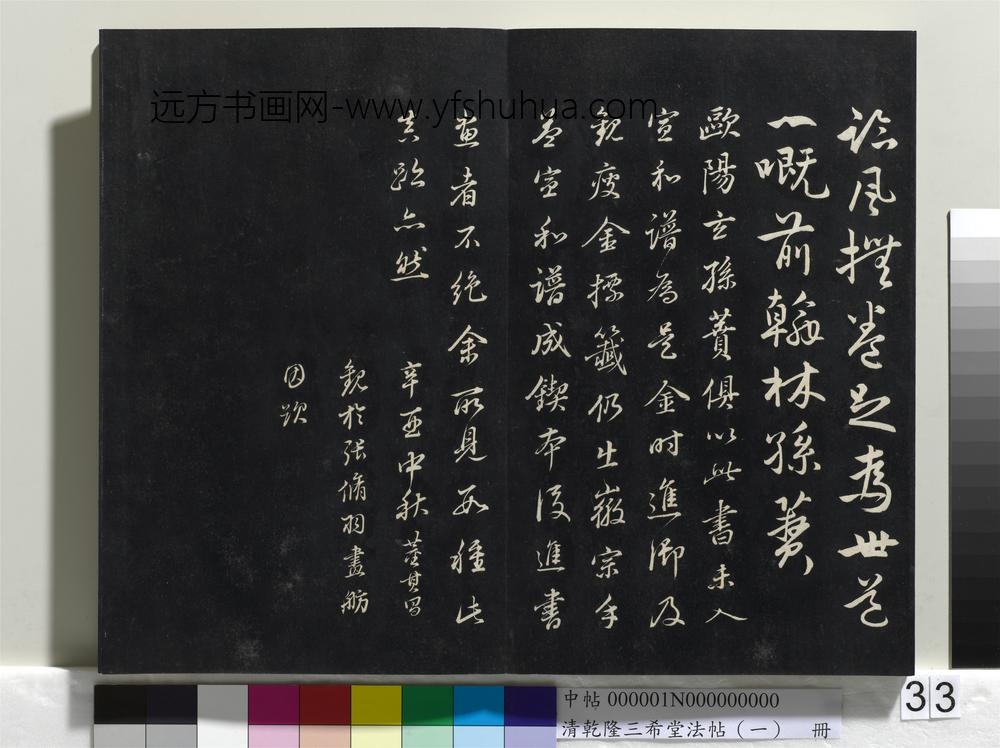 論風撫卷足為世道
一嘅前翰林孫蕡
歐陽玄孫蕡俱以此書未入
宣和譜為是金時進御及
觀瘦金標籤仍出徽宗手
蓋宣和譜成鍥本後進書
畫者不絕余所見數種此
真跡亦然
辛酉中秋董其昌
觀於張脩羽畫舫
因題
远方书画网-www.yfshuhua.com
中帖 000001N000000000
清乾隆三希堂法帖(一) 冊
33